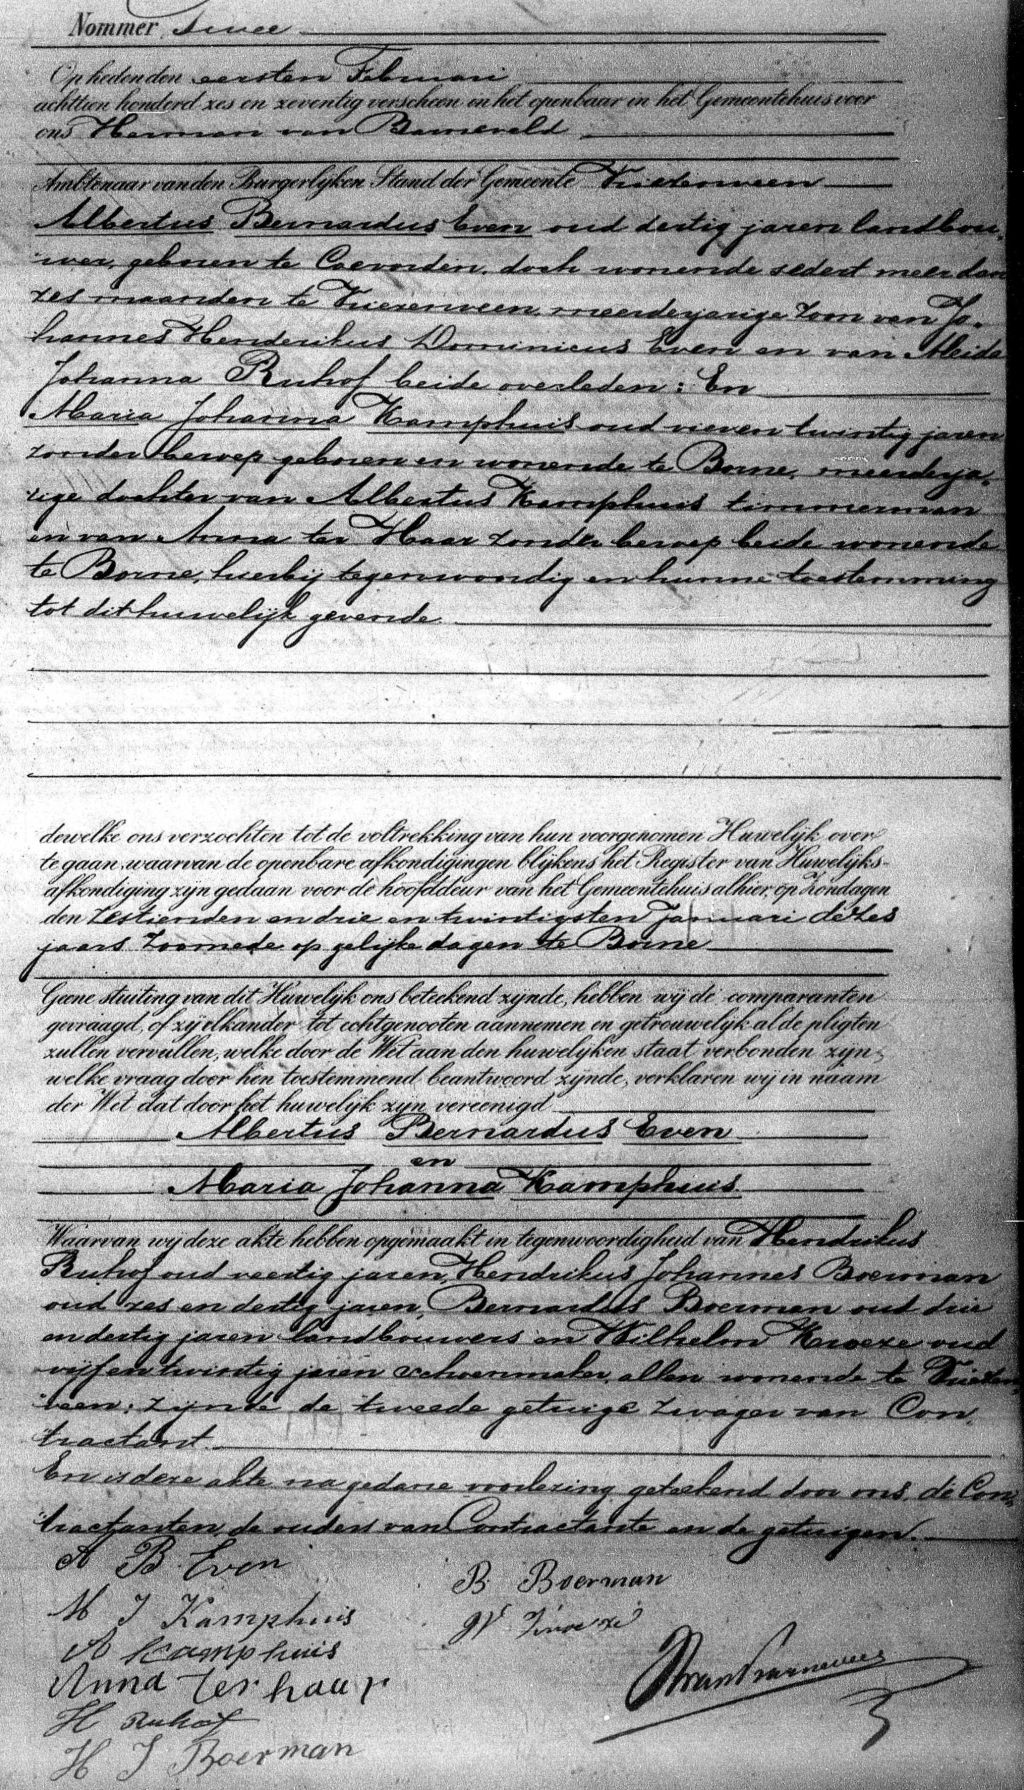 Nommer Twee
Op heden den eersten Februari
achttien honderd zes en zeventig verscheen in het openbaar in het Gemeentehuis voor
ons Herman van Barneveld
Ambtenaar van den Burgerlijken Stand der Gemeente Vriezenveen
Albertus Bernardus Even oud dertig jaren landbou-
wer, geboren te Coevorden, doch wonende sedert meer dan
zes maanden te Vriezenveen, meerderjarige zoon van Jo-
hannes Henderikus Dominicus Even en van Aleida
Johanna Ruhof beide overleden: En
Maria Johanna Kamphuis oud vier en twintig jaren
zonder beroep geboren en wonende te Borne, meerderja-
rige dochter van Albertus Kamphuis timmerman
en van Anna ter Haar zonder beroep beide wonende
te Borne, hierbij tegenwoordig en hunne toestemming
tot dit huwelijk gevende.
dewelke ons verzochten tot de voltrekking van hun voorgenomen Huwelijk over
te gaan, waarvan de openbare afkondigingen blijkens het Register van Huwelijks-
afkondiging zijn gedaan voor de hoofddeur van het Gemeentehuis alhier, op Zondagen
den zestienden en drie en twintigsten Januari dezes
jaars zoomede op gelijke dagen te Borne
Geene stuiting van dit Huwelijk ons beteekend zijnde, hebben wij de comparanten
gevraagd, of zij elkander tot echtgenooten aannemen en getrouwelijk al de pligten
zullen vervullen, welke door de Wet aan den huwelijken staat verbonden zijn;
welke vraag door hen toestemmend beantwoord zijnde, verklaren wij in naam
der Wet dat door het huwelijk zijn vereenigd
Albertus Bernardus Even
en
Maria Johanna Kamphuis
Waarvan wij deze akte hebben opgemaakt in tegenwoordigheid van Hendrikus
Ruhof oud veertig jaren, Hendrikus Johannes Boerman
oud zes en dertig jaren, Bernardus Boerman oud drie
en dertig jaren landbouwers en Wilhelm Kroeze oud
vijf en twintig jaren schoenmaker, allen wonende te Vriezen-
veen; zijnde de tweede getuige zwager van Con-
tractant.
En is deze akte na gedane voorlezing geteekend door ons, de Con-
tractanten, de ouders van Contractante en de getuigen.
A B Even
B Boerman
M J Kamphuis
W Kroeze
A Kamphuis
Anna Ter haar
H Ruhof
H J Boerman